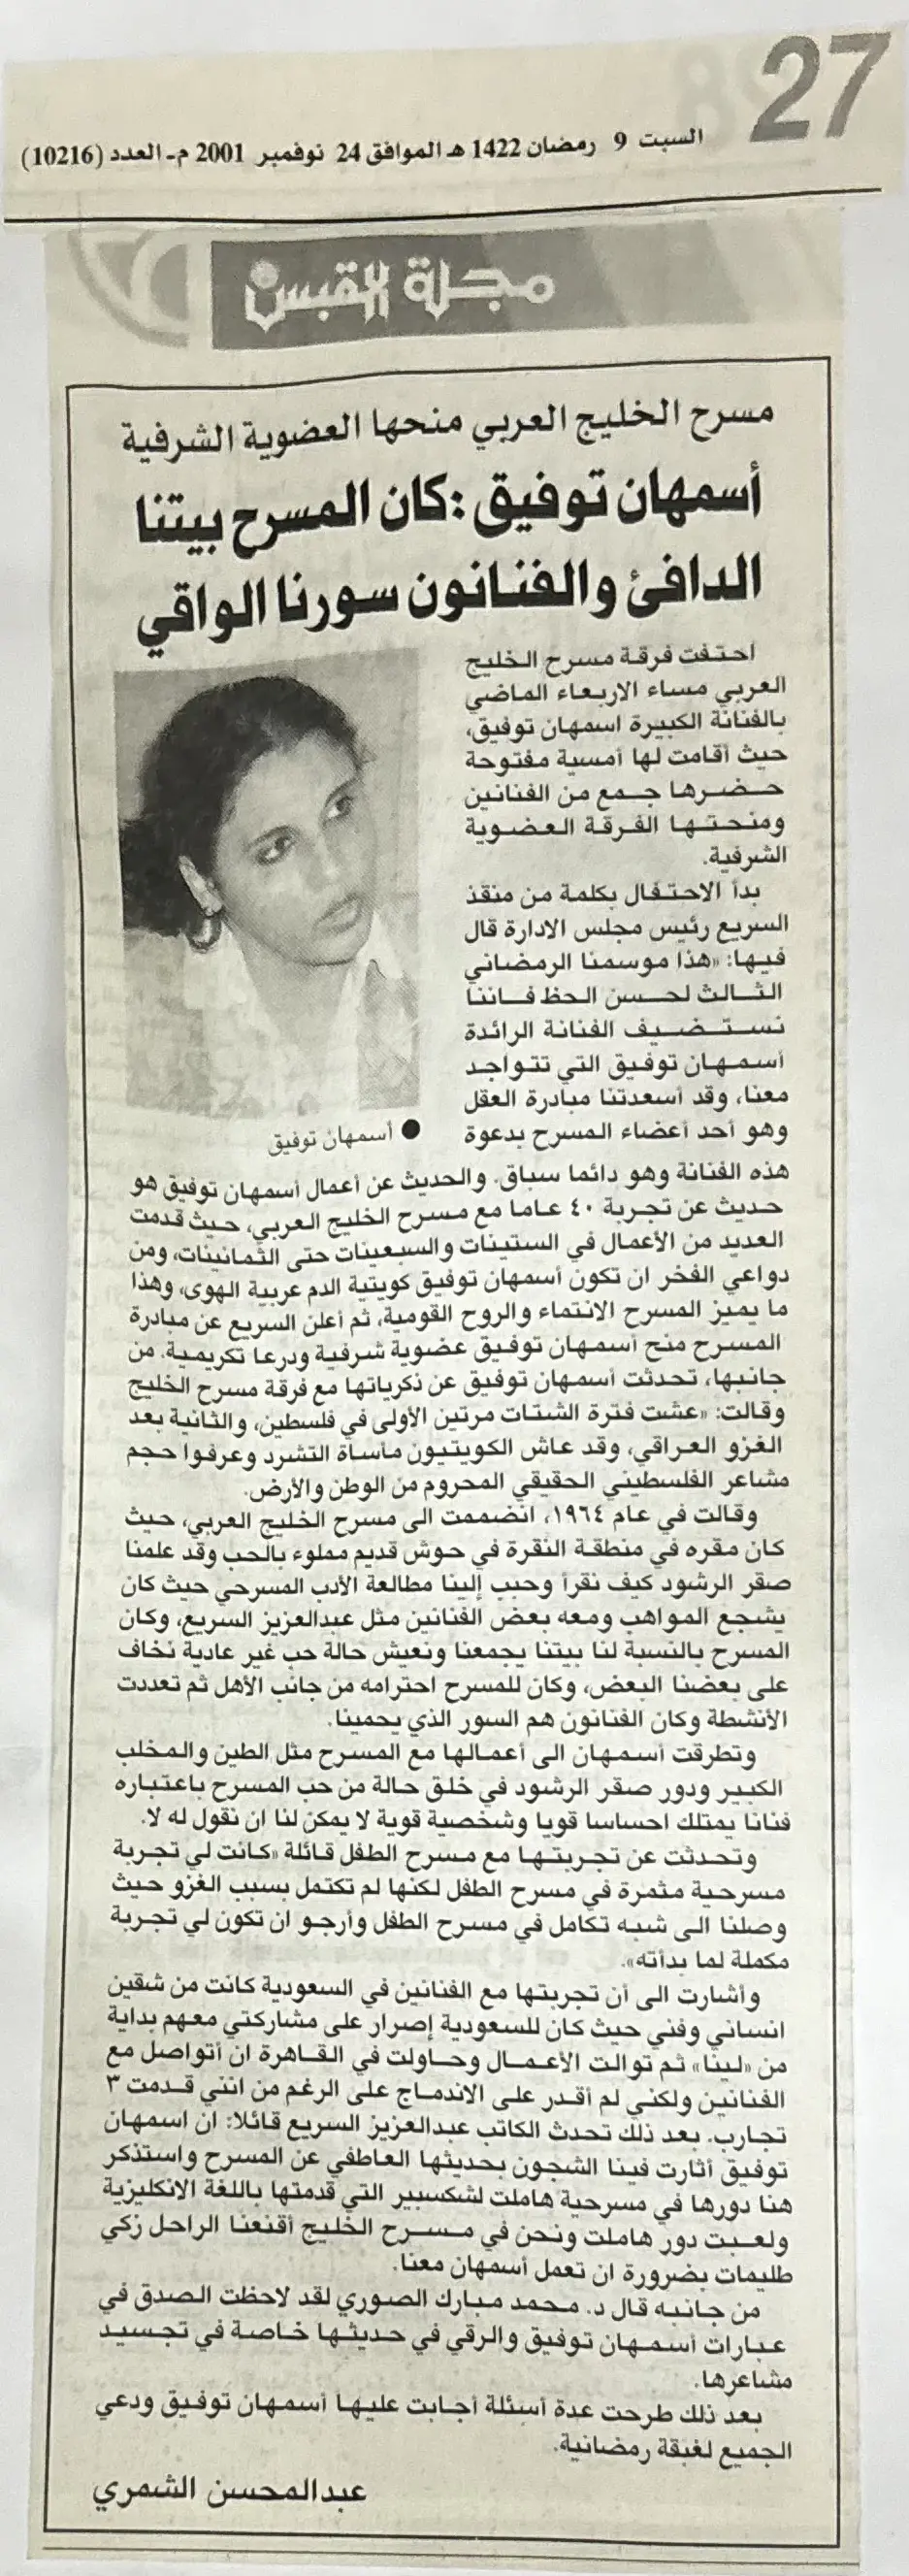 27
السبت 9 رمضان 1422 هـ الموافق 24 نوفمبر 2001 م - العدد (10216)
مجلة القبس
مسرح الخليج العربي منحها العضوية الشرفية
أسمهان توفيق : كان المسرح بيتنا
الدافئ والفنانون سورنا الواقي
احتفت فرقة مسرح الخليج
العربي مساء الاربعاء الماضي
بالفنانة الكبيرة اسمهان توفيق،
حيث أقامت لها أمسية مفتوحة
حضرها جمع من الفنانين
ومنحتها الفرقة العضوية
الشرفية.
بدأ الاحتفال بكلمة من منقذ
السريع رئيس مجلس الادارة قال
فيها: «هذا موسمنا الرمضاني
الثالث لحسن الحظ فاننا
نستضيف الفنانة الرائدة
أسمهان توفيق التي تتواجد
معنا، وقد أسعدتنا مبادرة العقل
وهو أحد أعضاء المسرح بدعوة
● أسمهان توفيق
هذه الفنانة وهو دائما سباق. والحديث عن أعمال أسمهان توفيق هو
حديث عن تجربة ٤٠ عاما مع مسرح الخليج العربي، حيث قدمت
العديد من الأعمال في الستينات والسبعينات حتى الثمانينات، ومن
دواعي الفخر ان تكون أسمهان توفيق كويتية الدم عربية الهوى، وهذا
ما يميز المسرح الانتماء والروح القومية، ثم أعلن السريع عن مبادرة
المسرح منح أسمهان توفيق عضوية شرفية ودرعا تكريمية. من
جانبها، تحدثت أسمهان توفيق عن ذكرياتها مع فرقة مسرح الخليج
وقالت: «عشت فترة الشتات مرتين الأولى في فلسطين، والثانية بعد
الغزو العراقي، وقد عاش الكويتيون مأساة التشرد وعرفوا حجم
مشاعر الفلسطيني الحقيقي المحروم من الوطن والأرض.
وقالت في عام ١٩٦٤، انضممت الى مسرح الخليج العربي، حيث
كان مقره في منطقة النقرة في حوش قديم مملوء بالحب وقد علمنا
صقر الرشود كيف نقرأ وحبب إلينا مطالعة الأدب المسرحي حيث كان
يشجع المواهب ومعه بعض الفنانين مثل عبدالعزيز السريع، وكان
المسرح بالنسبة لنا بيتنا يجمعنا ونعيش حالة حب غير عادية نخاف
على بعضنا البعض، وكان للمسرح احترامه من جانب الأهل ثم تعددت
الأنشطة وكان الفنانون هم السور الذي يحمينا.
وتطرقت أسمهان الى أعمالها مع المسرح مثل الطين والمخلب
الكبير ودور صقر الرشود في خلق حالة من حب المسرح باعتباره
فنانا يمتلك احساسا قويا وشخصية قوية لا يمكن لنا ان نقول له لا.
وتحدثت عن تجربتها مع مسرح الطفل قائلة «كانت لي تجربة
مسرحية مثمرة في مسرح الطفل لكنها لم تكتمل بسبب الغزو حيث
وصلنا الى شبه تكامل في مسرح الطفل وأرجو ان تكون لي تجربة
مكملة لما بدأته».
وأشارت الى أن تجربتها مع الفنانين في السعودية كانت من شقين
انساني وفني حيث كان للسعودية إصرار على مشاركتي معهم بداية
من «لينا» ثم توالت الأعمال وحاولت في القاهرة ان أتواصل مع
الفنانين ولكني لم أقدر على الاندماج على الرغم من انني قدمت ٣
تجارب. بعد ذلك تحدث الكاتب عبدالعزيز السريع قائلا: ان اسمهان
توفيق أثارت فينا الشجون بحديثها العاطفي عن المسرح واستذكر
هنا دورها في مسرحية هاملت لشكسبير التي قدمتها باللغة الانكليزية
ولعبت دور هاملت ونحن في مسرح الخليج أقنعنا الراحل زكي
طليمات بضرورة ان تعمل أسمهان معنا.
من جانبه قال د. محمد مبارك الصوري لقد لاحظت الصدق في
عبارات أسمهان توفيق والرقي في حديثها خاصة في تجسيد
مشاعرها.
بعد ذلك طرحت عدة أسئلة أجابت عليها أسمهان توفيق ودعي
الجميع لغبقة رمضانية.
عبدالمحسن الشمري